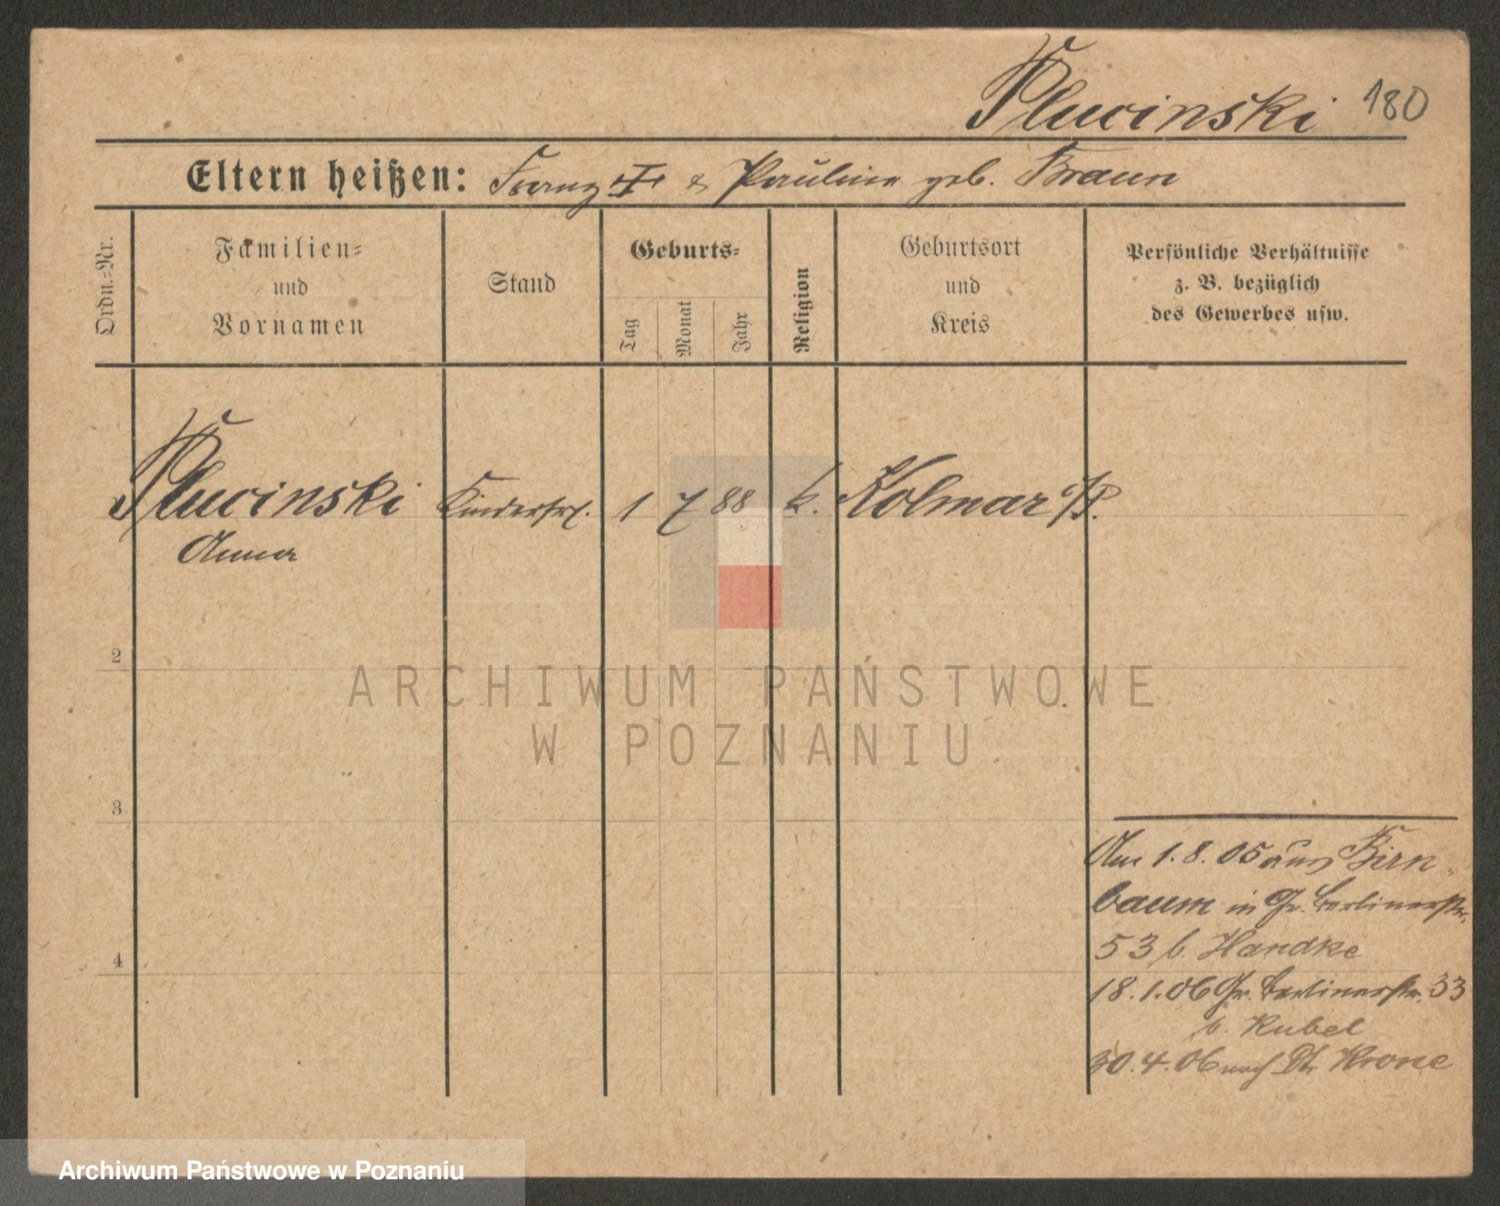 Plucinski 180
Eltern heißen: Franz † & Pauline geb. Braun
Ordn.=Nr.
Familien=
und
Vornamen
Stand
Geburts=
Tag
Monat
Jahr
Religion
Geburtsort
und
Kreis
Persönliche Verhältnisse
z. B. bezüglich
des Gewerbes usw.
Plucinski Kinderfrl. 1 7 88 k. Kolmar i/P.
Anna
2
ARCHIWUM PAŃSTWOWE
W POZNANIU
3
Am 1. 8. 05 aus Birn-
baum in Gr. Berlinerstr.
53 b. Handke
4
18. 1. 06 Gr. Berlinerstr. 33
b. Rubel
30. 4. 06 nach Dt. Krone
Archiwum Państwowe w Poznaniu